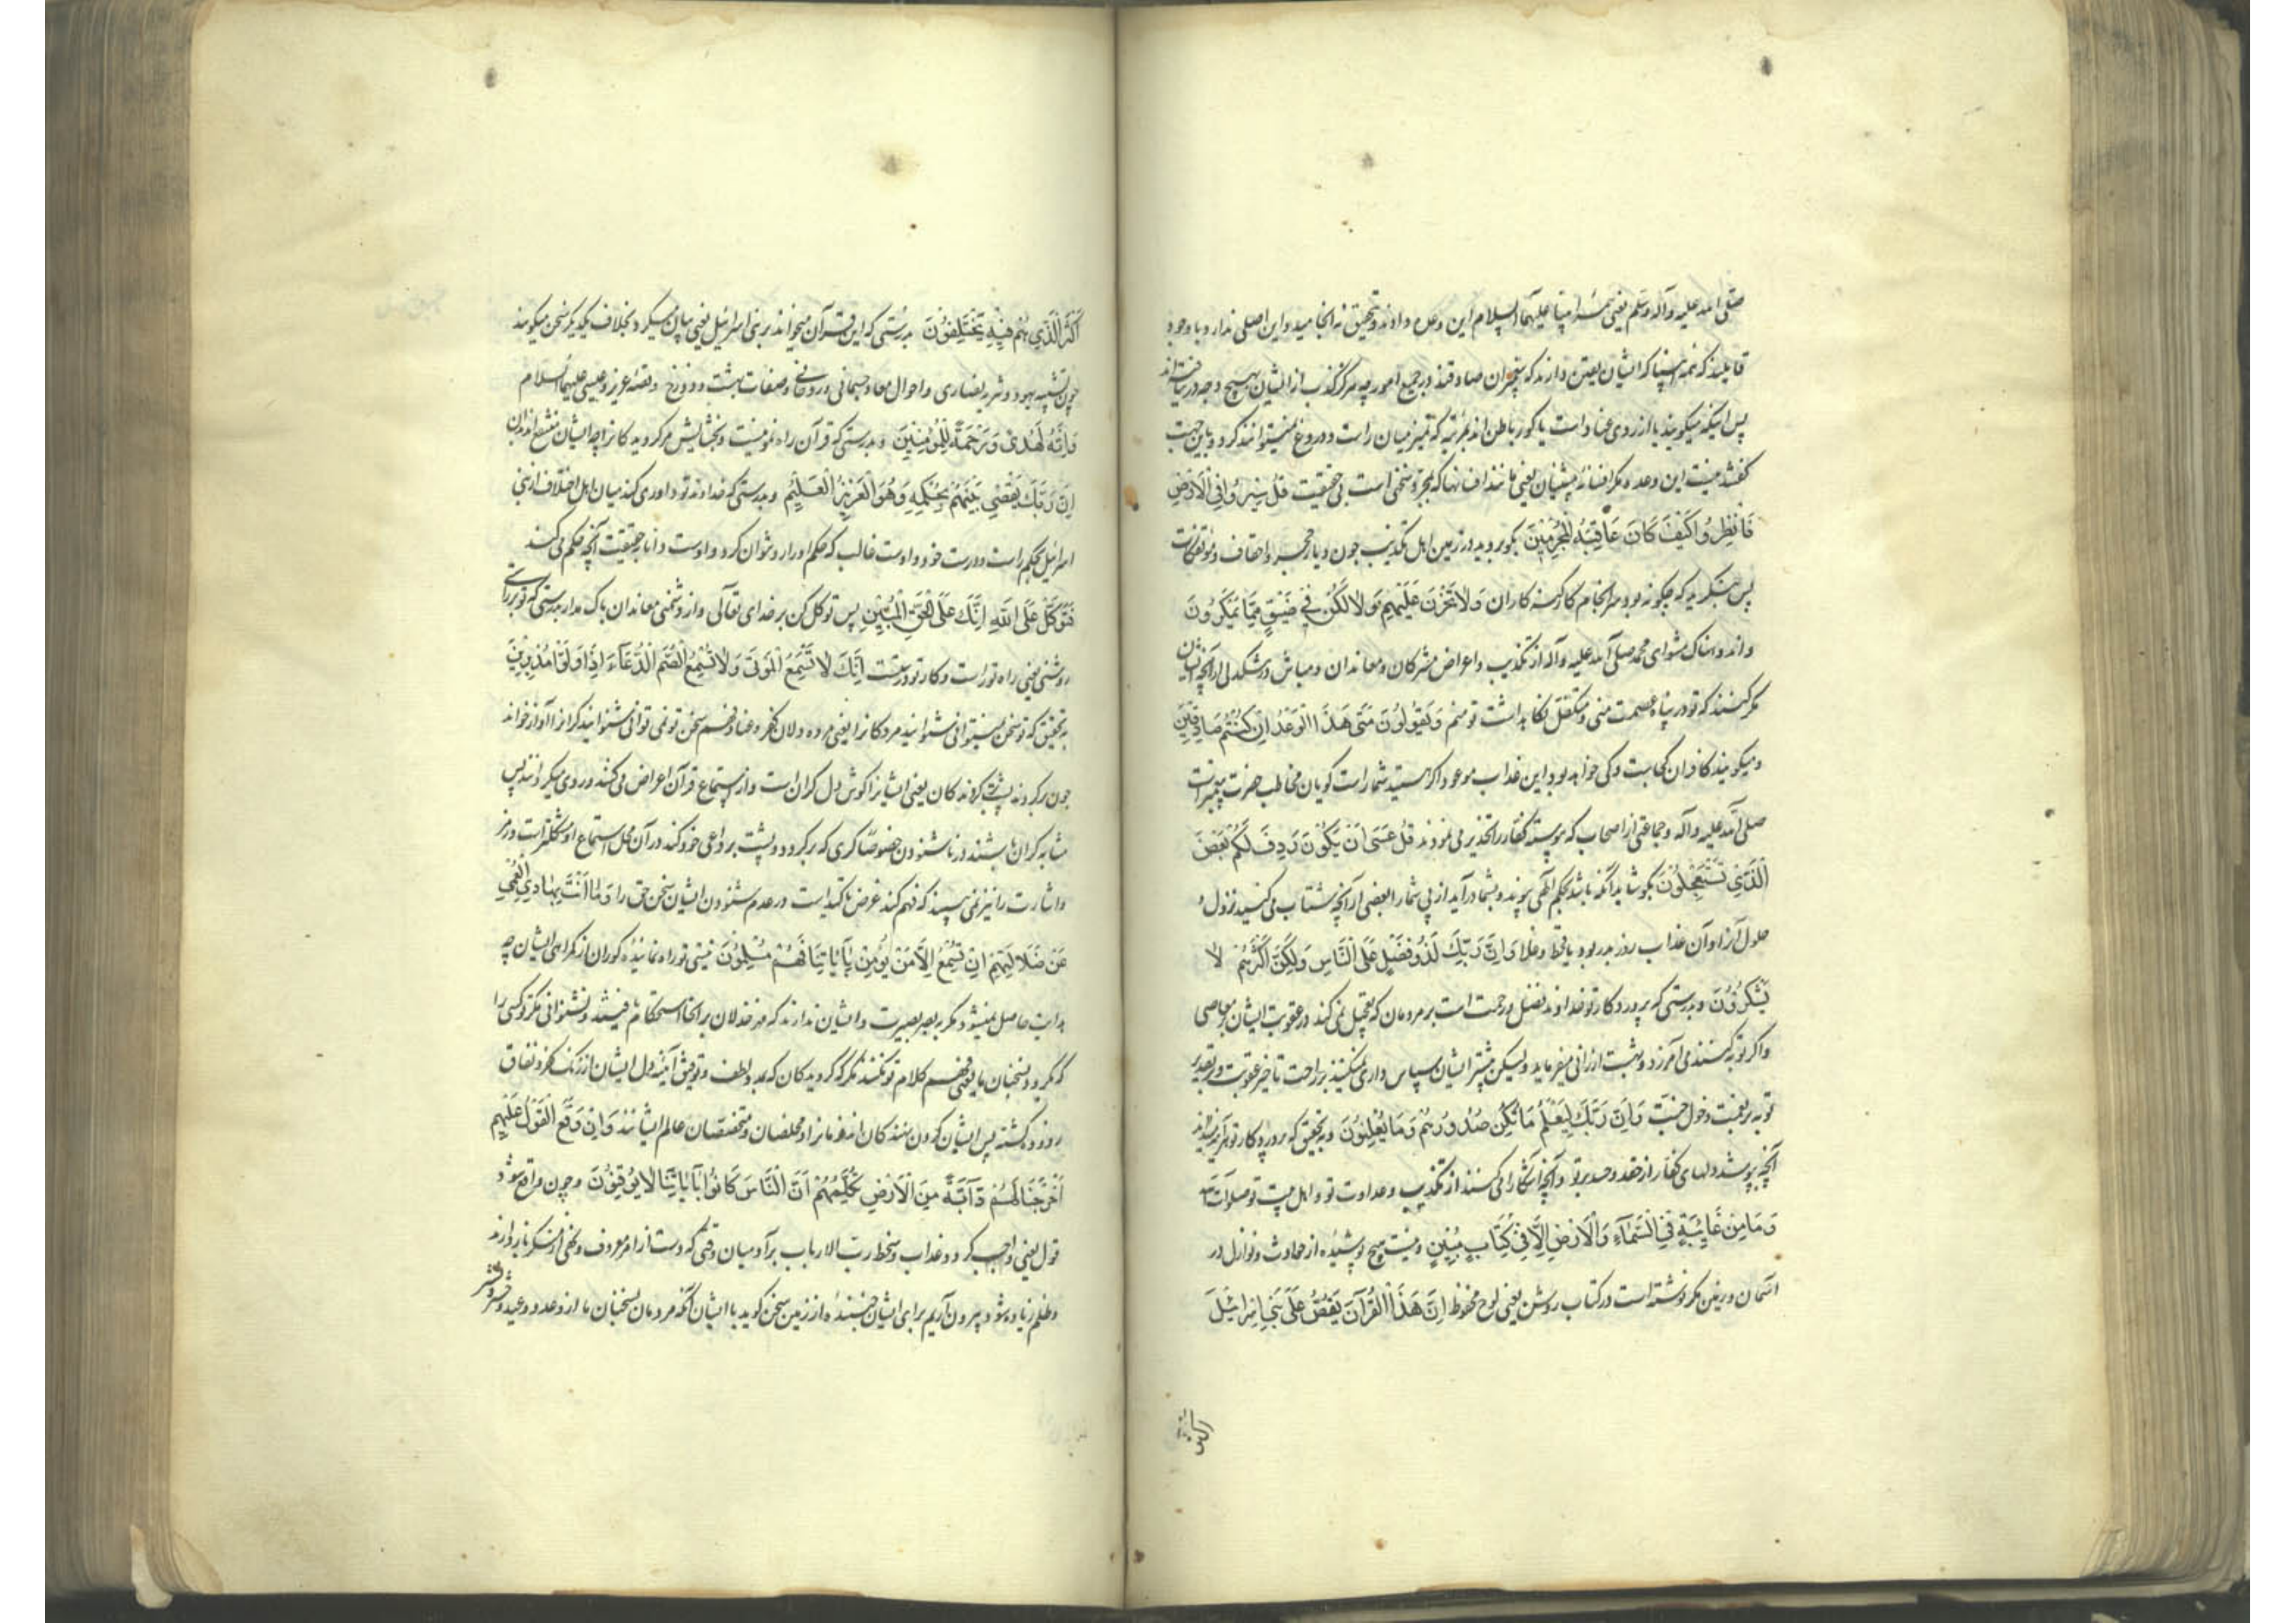 صلی الله علیه وآله وسلم یعنی همهٔ انبیا علیهم السلام این وعده دادند و تحقیق نه انجامید و این اصلی ندارد و با وجود
قایلیند که همه انبیا که ایشان یقین دارند که پیغمبران صادقند در جمیع امور چه هرگز کذب از ایشان بهیچ وجه در نیافته‌اند
پس اینکه میگویند یا از روی عناد است یا کور باطن اند بمرتبه که تمیز میان راست و دروغ نمیتوانند کرد و باین جهت
گفتند نیست این وعده مگر افسانهٔ پیشینیان یعنی مانند افسانها که مجرد سخنی است بی حقیقت قُلْ سِيرُوا فِي الْأَرْضِ
فَانْظُرُوا كَيْفَ كَانَ عَاقِبَةُ الْمُجْرِمِينَ بگو بروید در زمین اهل تکذیب چون دیار حجر و احقاف و مؤتفکات
پس بنگرید که چگونه بود سرانجام کار گنه کاران وَلَا تَحْزَنْ عَلَيْهِمْ وَلَا تَكُنْ فِي ضَيْقٍ مِمَّا يَمْكُرُونَ
و اندوهناک مشو ای محمد صلی الله علیه وآله از تکذیب و اعراض مشرکان و معاندان و مباش در تنگدلی از آنچه ایشان
مکر کنند که تو در پناه عصمت منی و متکفل نگاهداشت تو منم وَيَقُولُونَ مَتَى هَذَا الْوَعْدُ إِنْ كُنْتُمْ صَادِقِينَ
و میگویند کافران کجاست و کی خواهد بود این عذاب موعود اگر هستید شما راست گویان مخاطب حضرت پیغمبر است
صلی الله علیه وآله و جماعتی از اصحاب که پیوسته کفار را تحذیر می نمودند قُلْ عَسَى أَنْ يَكُونَ رَدِفَ لَكُمْ بَعْضُ
الَّذِي تَسْتَعْجِلُونَ بگو شاید آنکه باشد بحکم الهی پیوندد بشما و درآید از پی شما را بعضی از آنچه شتاب می کنید نزول
حلول آنرا و آن عذاب روز بدر بود یا قحط و غلا وَإِنَّ رَبَّكَ لَذُو فَضْلٍ عَلَى النَّاسِ وَلَكِنَّ أَكْثَرَهُمْ لَا
يَشْكُرُونَ و بدرستی که پروردگار تو خداوند فضل و رحمت است بر مردمان که تعجیل نمی کند در عقوبت ایشان بر معاصی
و اگر توبه کنند می آمرزد و بهشت ارزانی میفرماید ولیکن بیشتر ایشان سپاس داری نمیکنند بر راحت تاخیر عقوبت و بر تقدیر
توبه بر نعمت دخول جنت وَإِنَّ رَبَّكَ لَيَعْلَمُ مَا تُكِنُّ صُدُورُهُمْ وَمَا يُعْلِنُونَ و بتحقیق که پروردگار تو هر آینه میداند
آنچه بپوشد دلهای کفار از حقد و حسد بر تو و آنچه آشکارا می کنند از تکذیب و عداوت تو و اهل بیت تو صلوات الله
وَمَا مِنْ غَائِبَةٍ فِي السَّمَاءِ وَالْأَرْضِ إِلَّا فِي كِتَابٍ مُبِينٍ و نیست هیچ پوشیده از حوادث و نوازل در
آسمان و زمین مگر نوشته است در کتاب روشن یعنی لوح محفوظ إِنَّ هَذَا الْقُرْآنَ يَقُصُّ عَلَى بَنِي إِسْرَائِيلَ
أَكْثَرَ الَّذِي هُمْ فِيهِ يَخْتَلِفُونَ بدرستی که این قرآن میخواند بر بنی اسرائیل یعنی بیان میکرد بخلاف یکدیگر سخن میگویند
چون تشبیه یهود و تنزیه نصاری و احوال معاد جسمانی و روحانی و صفات بهشت و دوزخ و قصهٔ عزیر و عیسی علیهما السلام
وَإِنَّهُ لَهُدًى وَرَحْمَةٌ لِلْمُؤْمِنِينَ و بدرستی که قرآن راه نمونیست و بخشایش مر گرویدگانرا چه ایشان منتفع اند بدان
إِنَّ رَبَّكَ يَقْضِي بَيْنَهُمْ بِحُكْمِهِ وَهُوَ الْعَزِيزُ الْعَلِيمُ و بدرستی که خداوند تو داوری کند میان اهل اختلاف از بنی
اسرائیل بحکم راست و درست خود و اوست غالب که حکم او را رد نتوان کرد و اوست دانا بحقیقت آنچه حکم می کند
فَتَوَكَّلْ عَلَى اللَّهِ إِنَّكَ عَلَى الْحَقِّ الْمُبِينِ پس توکل کن بر خدای تعالی و از دشمنی معاندان باک مدار بدرستی که تو بر راستی
روشنی یعنی راه تو راست و کار تو درست إِنَّكَ لَا تُسْمِعُ الْمَوْتَى وَلَا تُسْمِعُ الصُّمَّ الدُّعَاءَ إِذَا وَلَّوْا مُدْبِرِينَ
بتحقیق که تو سخن نمیتوانی شنوانید مردگانرا یعنی مرده دلان کفر و عناد فهم سخن تو نمی توانی شنوانید کرانرا آواز خواند
چون برگردند پشت کردگان یعنی ایشانرا گوش دل کران است و از استماع قرآن اعراض می کنند و روی میگردانند پس
مشابه کران باشند در ناشنودن خصوصا کری که برگردد و پشت بر داعی خود کند در آن محل استماع او مشکلتر است و رمز
و اشارت را نیز نمی بیند که فهم کند غرض تاکید است در عدم شنودن ایشان سخن حق را وَمَا أَنْتَ بِهَادِي الْعُمْيِ
عَنْ ضَلَالَتِهِمْ إِنْ تُسْمِعُ إِلَّا مَنْ يُؤْمِنُ بِآيَاتِنَا فَهُمْ مُسْلِمُونَ نیستی تو راه نماینده کوران از گمراهی ایشان چه
هدایت حاصل نمیشود مگر به بصر بصیرت و ایشان ندارند که مهر خذلان بر آنجا استحکام یافته و نشنوانی مگر کسی را
که بگرود بسخنان ما یعنی فهم کلام تو نکنند مگر گرویدگان که بمدد لطف و توفیق آئینه دل ایشان از زنگ کفر و نفاق
زدوده گشته پس ایشان گردن نهندگان اند فرمانرا و مخلصان و متخصصان عالم ایشانند وَإِذَا وَقَعَ الْقَوْلُ عَلَيْهِمْ
أَخْرَجْنَا لَهُمْ دَآبَّةً مِنَ الْأَرْضِ تُكَلِّمُهُمْ أَنَّ النَّاسَ كَانُوا بِآيَاتِنَا لَا يُوقِنُونَ و چون واقع شود
قول یعنی واجب گردد عذاب و سخط رب الارباب بر آدمیان وقتی که دست از امر معروف و نهی از منکر باز دارند
و ظلم زیاده شود بیرون آریم برای ایشان جنبندهٔ از زمین سخن گوید با ایشان آنکه مردمان بسخنان ما از وعد و وعید و حشر و نشر